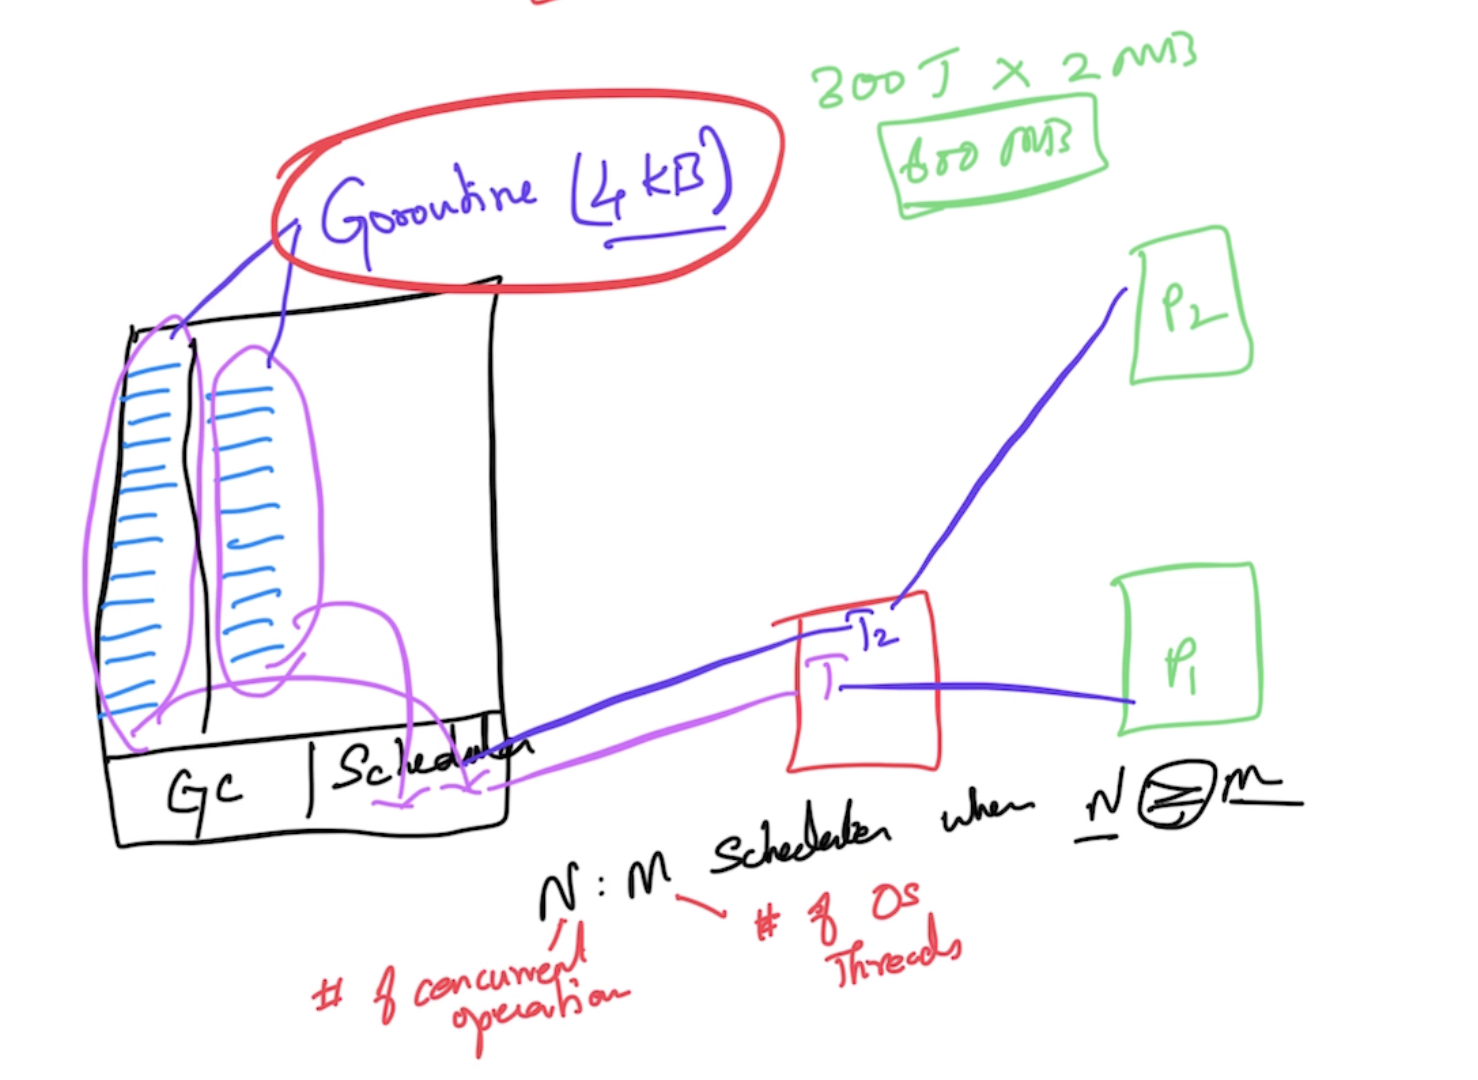 300 T X 2 MB
600 MB
Goroutine (4 KB)
P2
T2
T
P1
GC | Scheduler
N : M Scheduler when N ≥ M
# of concurrent operation
# of OS Threads